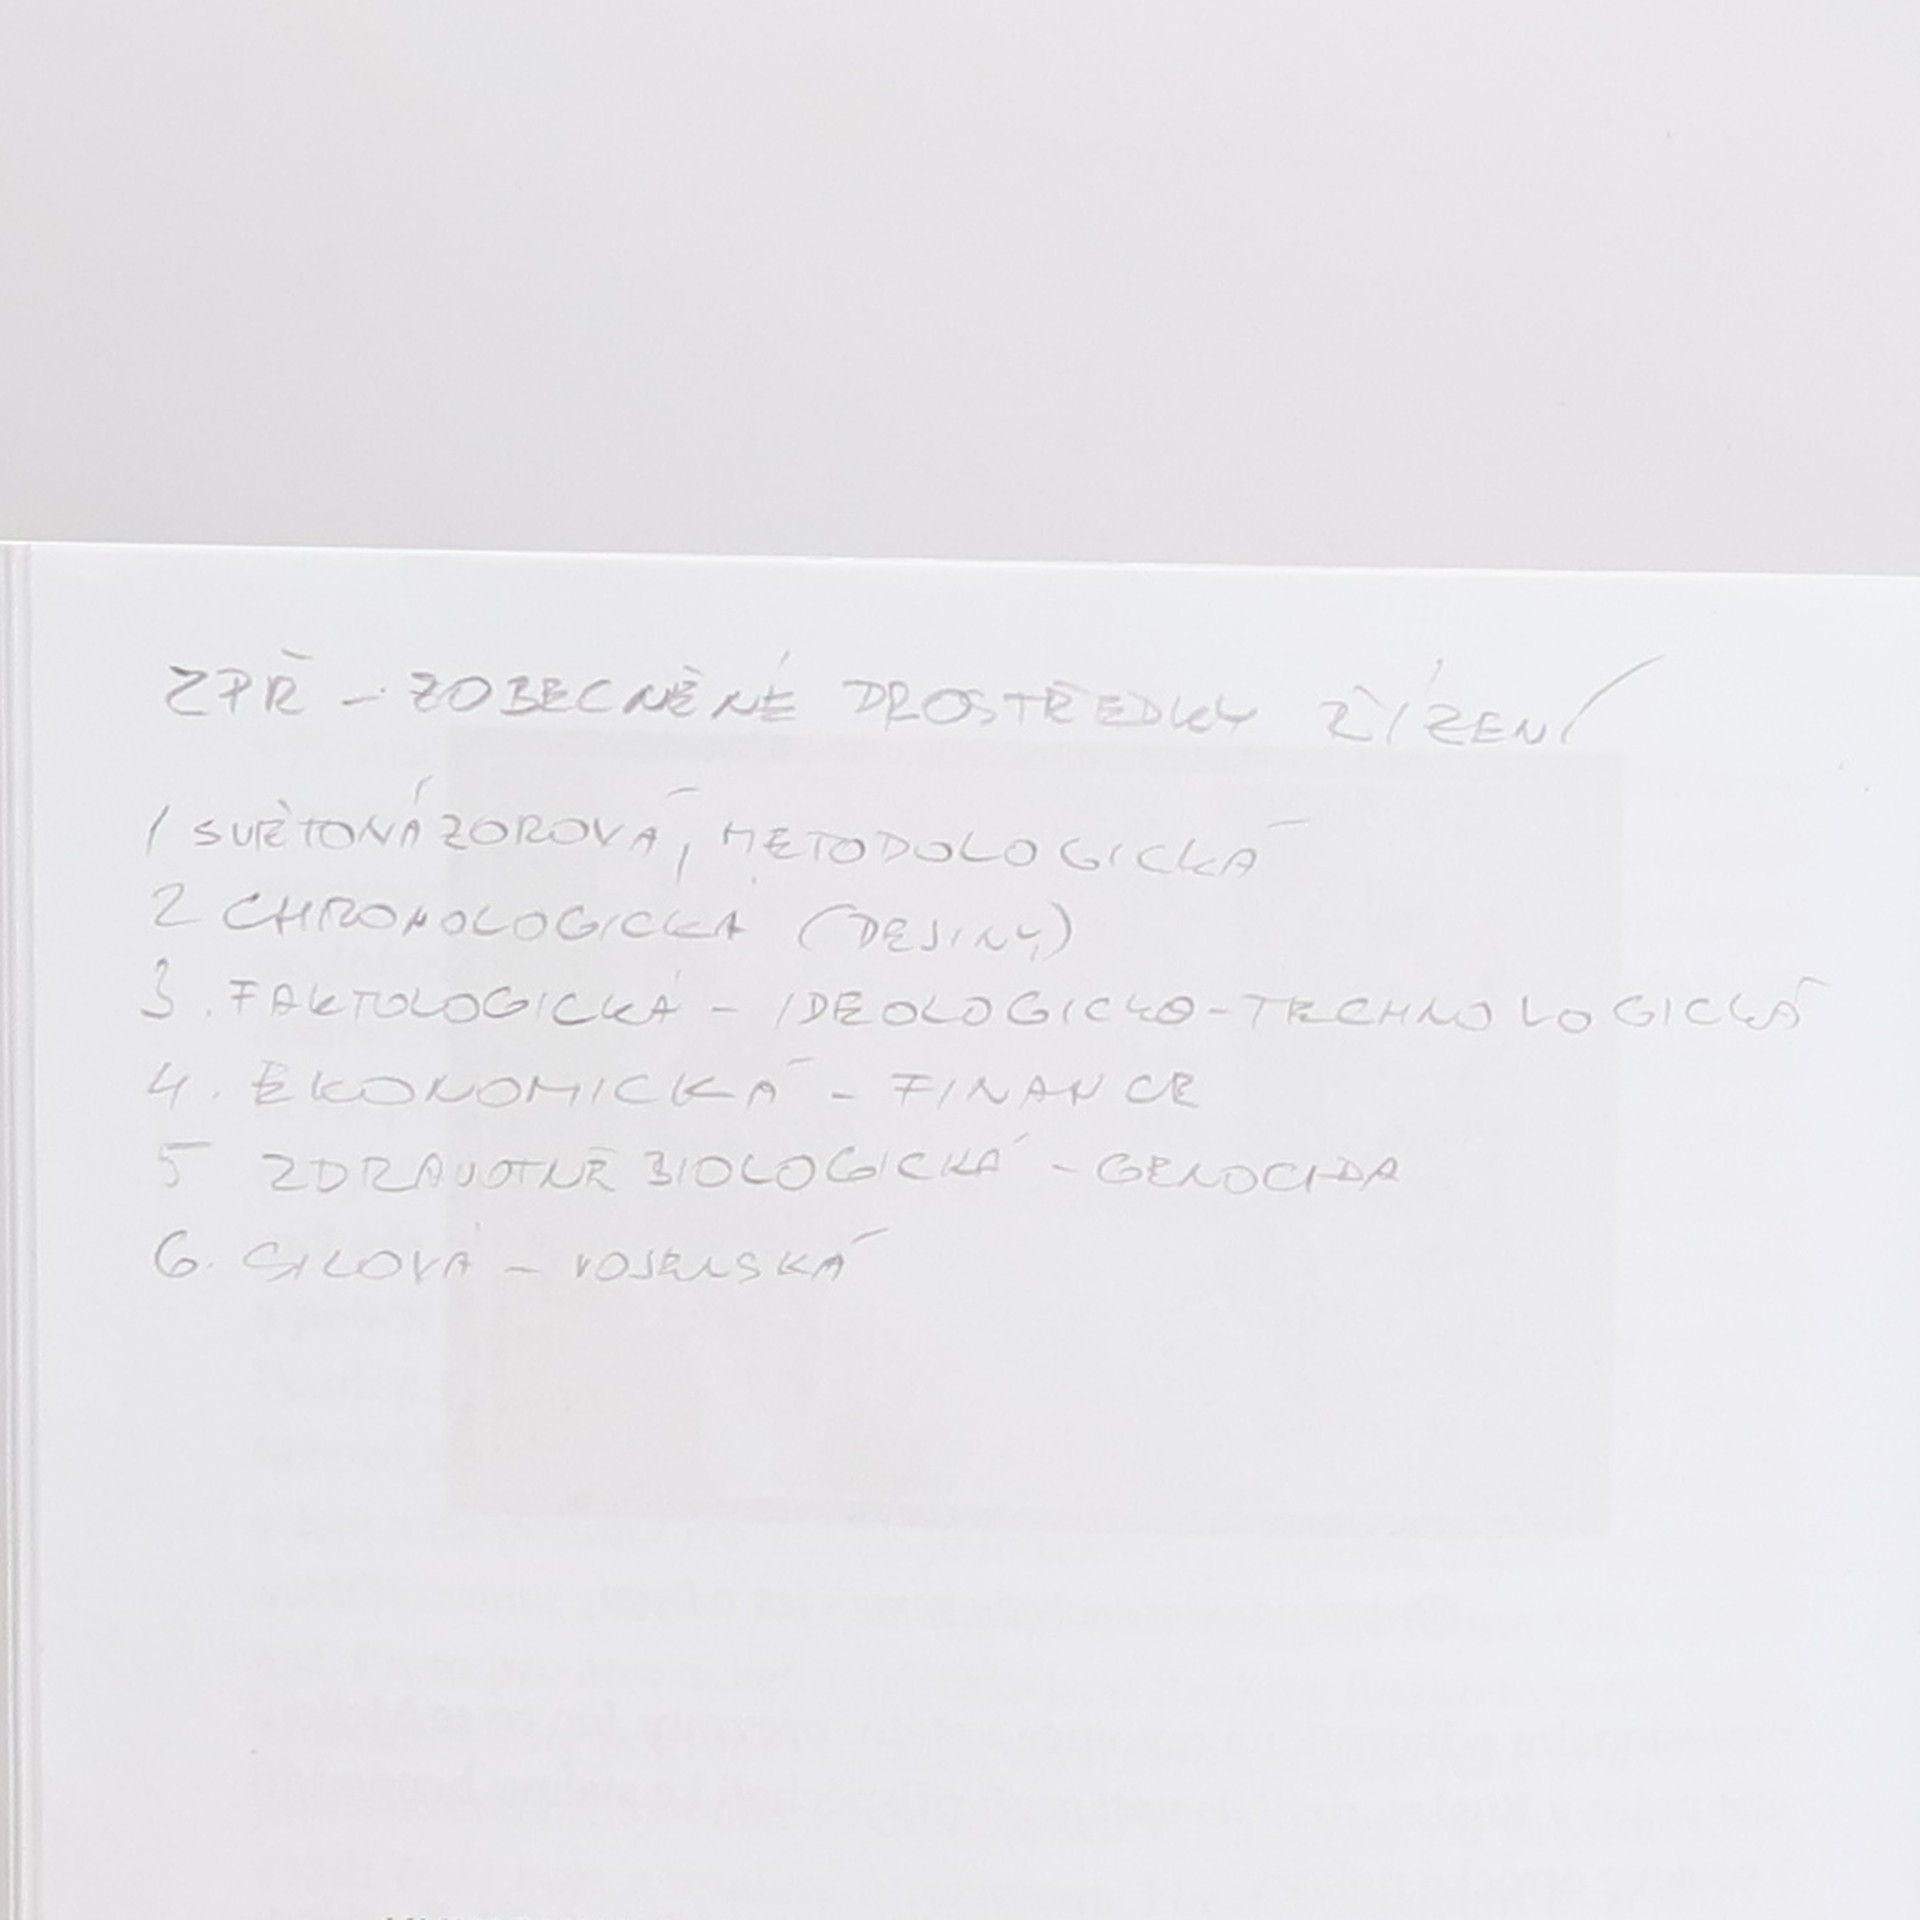 ZPŘ - ZOBECNĚNÉ PROSTŘEDKY ŘÍZENÍ
1 SVĚTONÁZOROVÁ, METODOLOGICKÁ
2 CHRONOLOGICKÁ (DEJINY)
3. FAKTOLOGICKÁ - IDEOLOGICKO-TECHNOLOGICKÁ
4. EKONOMICKÁ - FINANCE
5 ZDRAVOTNĚ BIOLOGICKÁ - GENOCIDA
6. SILOVÁ - VOJENSKÁ